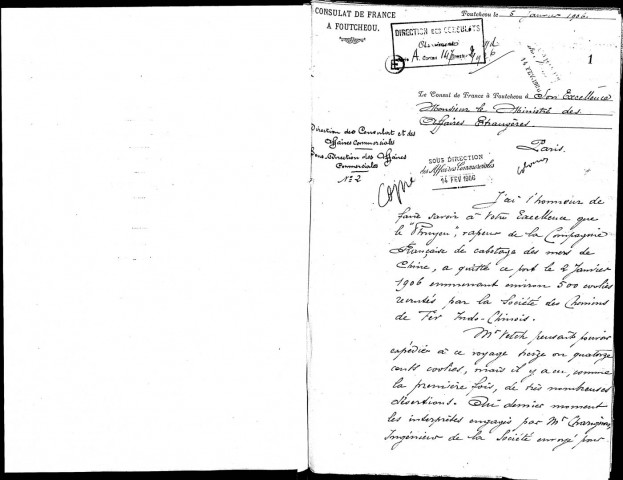 CONSULAT DE FRANCE
A FOUTCHEOU.
Foutcheou le 5 janvier 1906.
DIRECTION DES CONSULATS
1
Le Consul de France à Foutcheou à Son Excellence
Monsieur le Ministre des
Affaires Etrangères.
Paris.
Direction des Consulats et des
Affaires Commerciales
Sous Direction des Affaires
Commerciales
N° 2
SOUS DIRECTION
des Affaires Commerciales
14 FEV 1906
J'ai l'honneur de
faire savoir à Votre Excellence que
le vapeur de la Compagnie
Française de cabotage des mers de
Chine, a quitté ce port le 2 Janvier
1906 emmenant environ 500 coolies
recrutés par la Société des Chemins
de Fer Indo-Chinois.
Mr Vetch pensait pouvoir
expédier à ce voyage treize ou quatorze
cents coolies, mais il y a eu, comme
la première fois, de très nombreuses
désertions. Au dernier moment
les interprètes engagés par Mr
Ingénieur de la Société envoyé pour